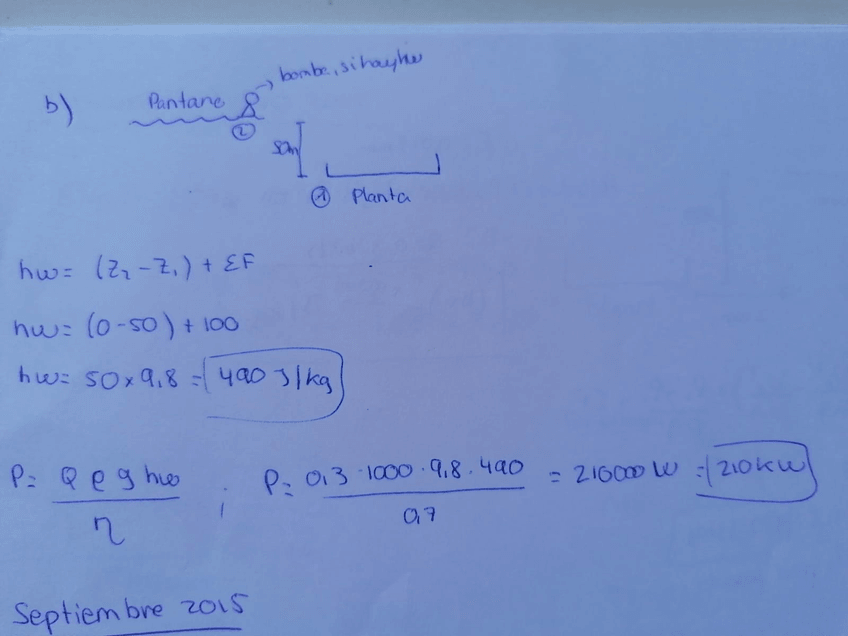 b) Pantano bomba, si hay hw
②
50m
① Planta
hw = (Z₂ - Z₁) + ΣF
hw = (0 - 50) + 100
hw = 50 x 9,8 = 490 J/kg
P = Q ρ g hw / η ; P = 0,3 · 1000 · 9,8 · 490 / 0,7 = 210000 W = 210 kW
Septiembre 2015